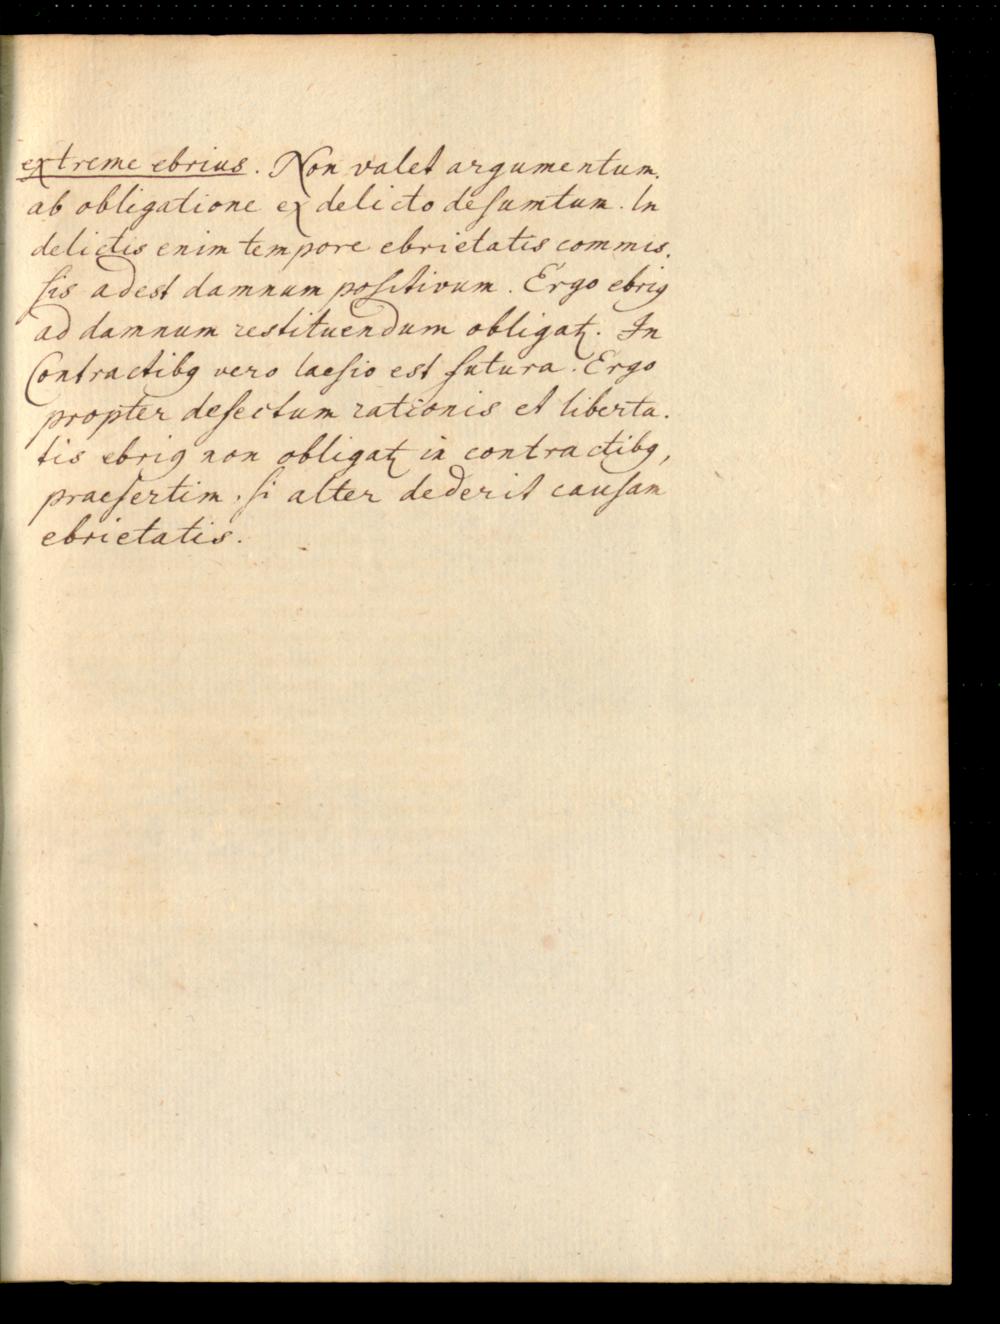 extreme ebrius. Non valet argumentum
ab obligatione ex delicto desumtum. In
delictis enim tempore ebrietatis commis.
sis adest damnum positivum. Ergo ebriꝰ
ad damnum restituendum obligatꝭ. In
Contractibꝰ vero laesio est futura. Ergo
propter defectum rationis et liberta.
tis ebriꝰ non obligatꝭ in contractibꝰ,
praesertim. si alter dederit causam
ebrietatis.